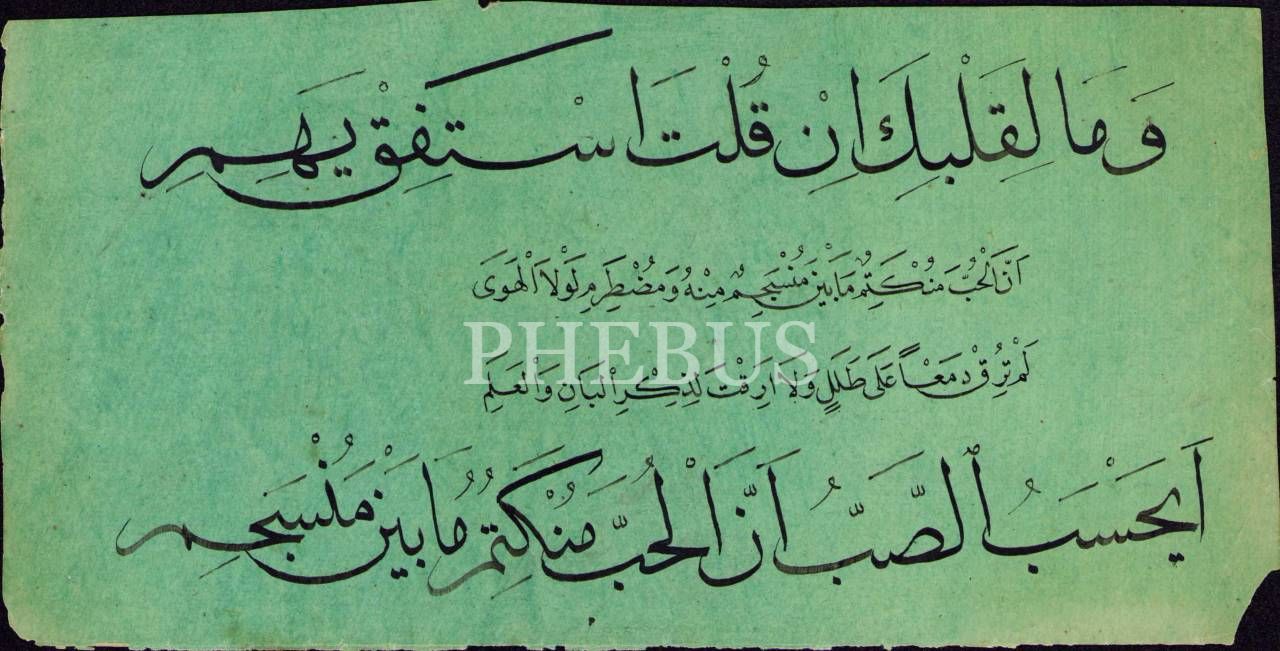 وَمَا لِقَلْبِكَ اِنْ قُلْتَ اسْتَفِقْ يَهِمِ
اَنَّ الْحُبَّ مُنْكَتِمٌ مَا بَيْنَ مُنْسَجِمٍ مِنْهُ وَمُضْطَرِمِ لَوْلَا الْهَوَى
PHEBUS
لَمْ تُرِقْ دَمَعْاً عَلَى طَلَلٍ وَلَا اَرِقْتَ لِذِكْرِ الْبَانِ وَالْعَلَمِ
اَيَحْسَبُ الصَّبُّ اَنَّ الْحُبَّ مُنْكَتِمٌ مَا بَيْنَ مُنْسَجِمِ